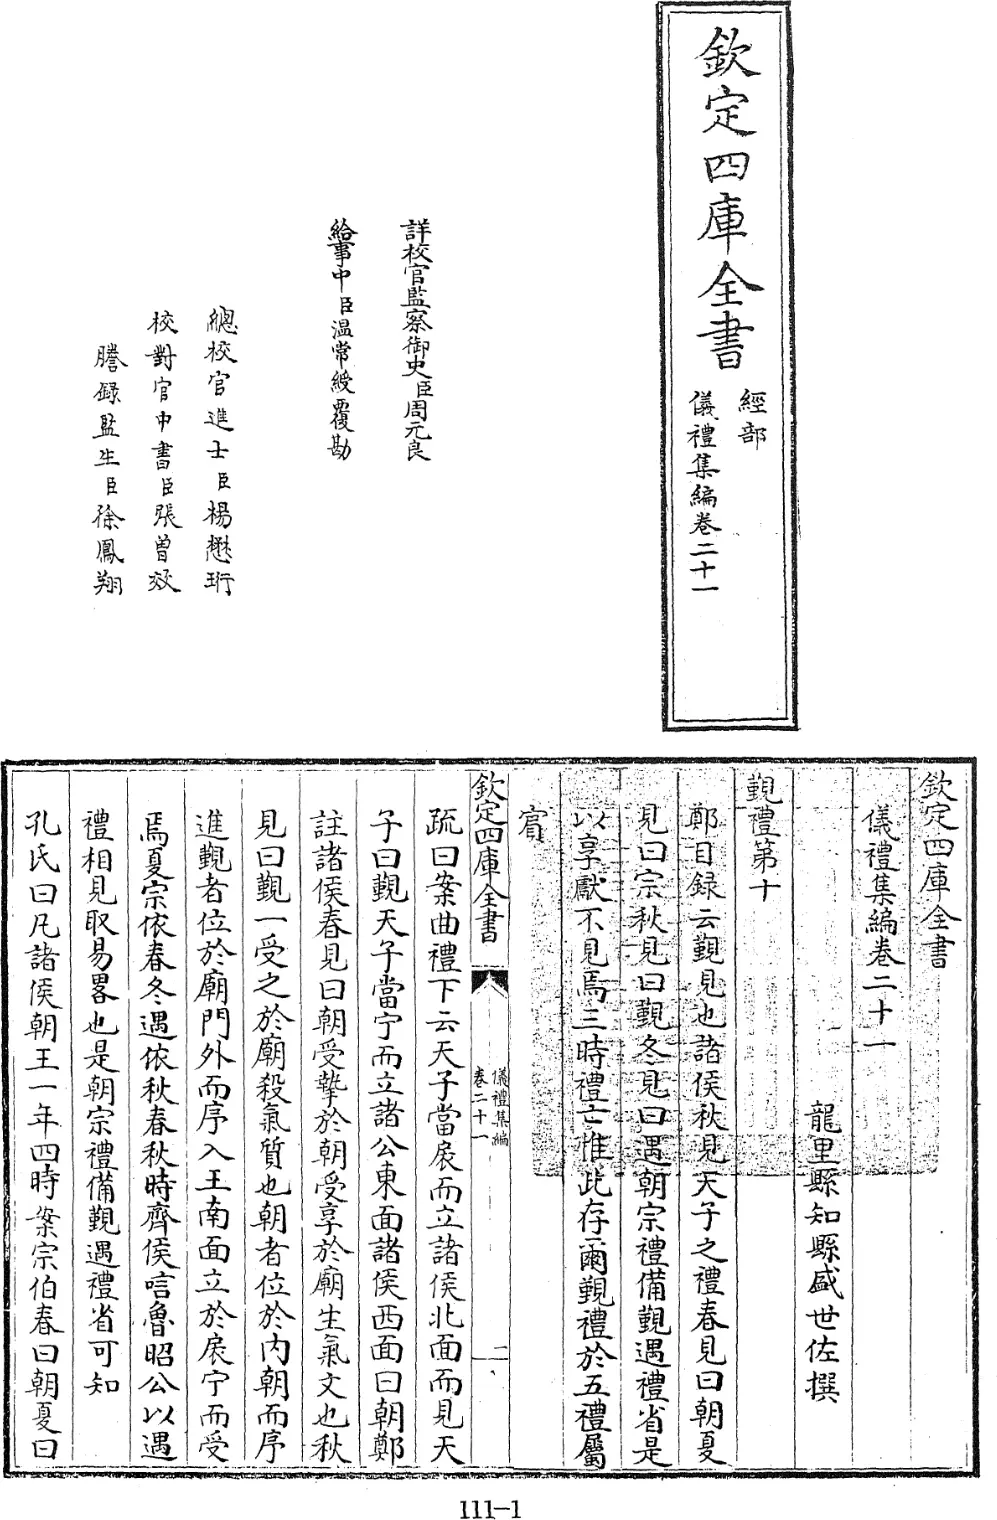 欽定四庫全書
經部
儀禮集編卷二十一
詳校官監察御史臣周元良
給事中臣温常綬覆勘
總校官進士臣楊懋珩
校對官中書臣張曾效
謄録監生臣徐鳳翔
欽定四庫全書
儀禮集編卷二十一
龍里縣知縣盛世佐撰
覲禮第十
鄭目録云覲見也諸侯秋見天子之禮春見曰朝夏
見曰宗秋見曰覲冬見曰遇朝宗禮備覲遇禮省是
以享獻不見焉三時禮亡惟此存爾覲禮於五禮屬
賓
欽定四庫全書
儀禮集編
卷二十一
二
疏曰案曲禮下云天子當扆而立諸侯北面而見天
子曰覲天子當宁而立諸公東面諸侯西面曰朝鄭
註諸侯春見曰朝受摯於朝受享於廟生氣文也秋
見曰覲一受之於廟殺氣質也朝者位於内朝而序
進覲者位於廟門外而序入王南面立於扆宁而受
焉夏宗依春冬遇依秋春秋時齊侯唁魯昭公以遇
禮相見取易畧也是朝宗禮備覲遇禮省可知
孔氏曰凡諸侯朝王一年四時案宗伯春曰朝夏曰
111-1